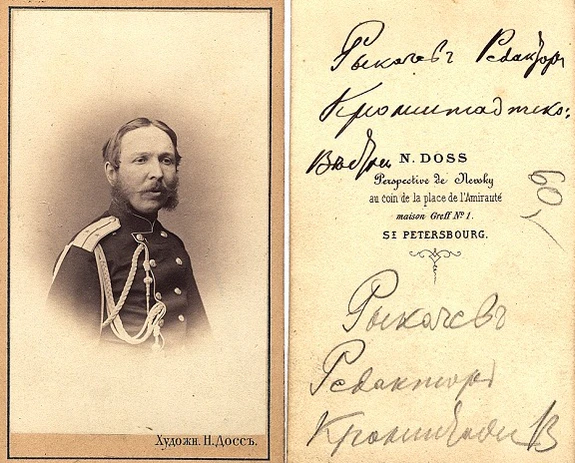 Художн. Н. Доссъ.
Рыкачевъ Редакторъ
Кронштадтско:
N. DOSS
Perspective de Nevsky
au coin de la place de l'Amirauté
maison Greff Nº 1.
St PETERSBOURG.
60
Рыкачевъ
Редакторъ